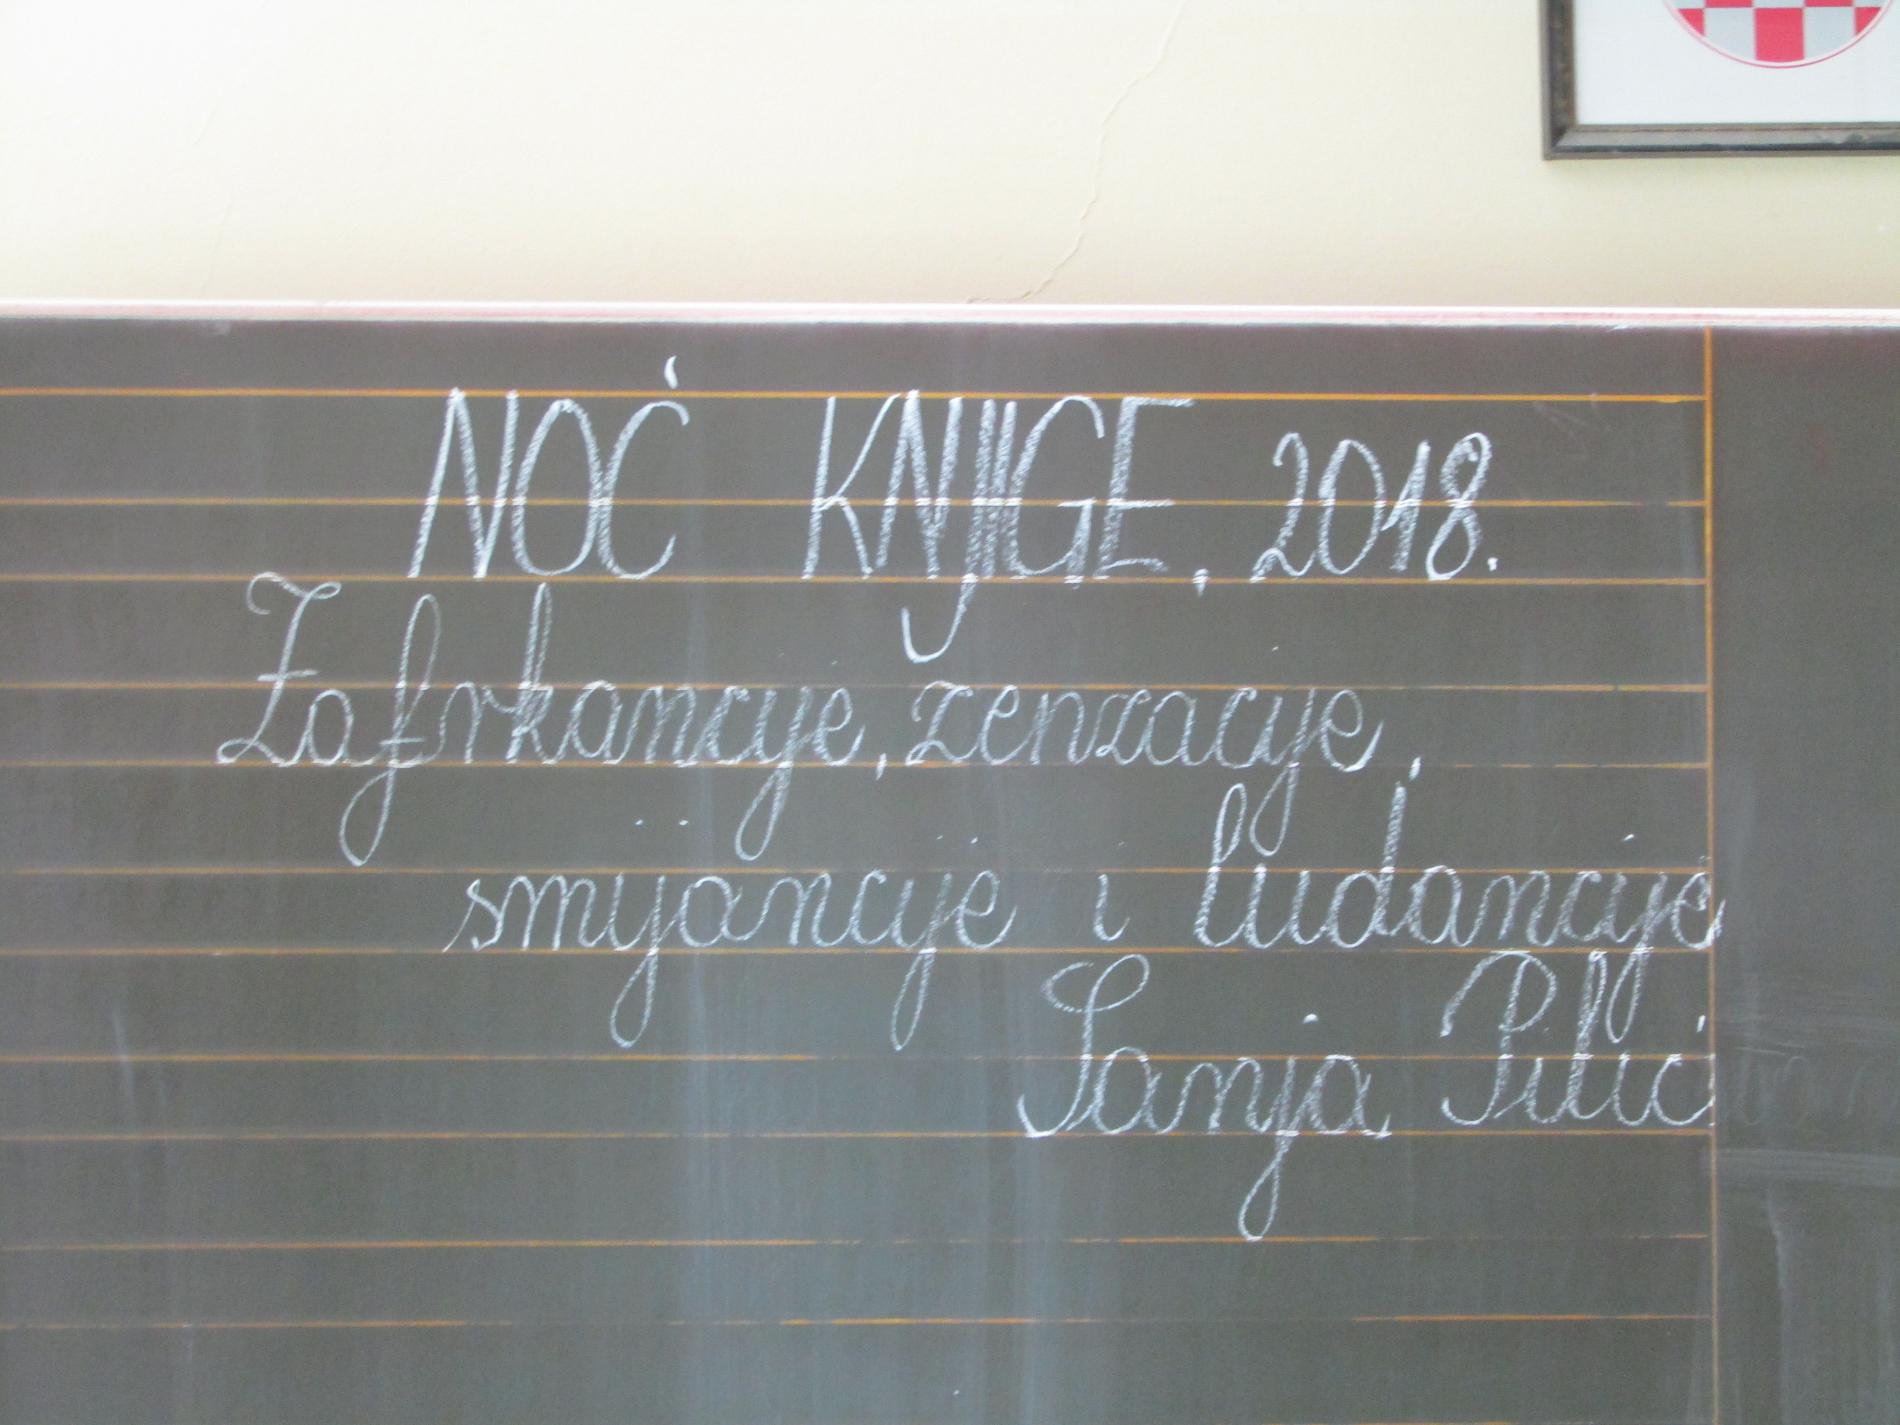 NOĆ KNJIGE, 2018.
Zafrkancije, zenzacije,
smijancije i ludancije
Sanja Pilić